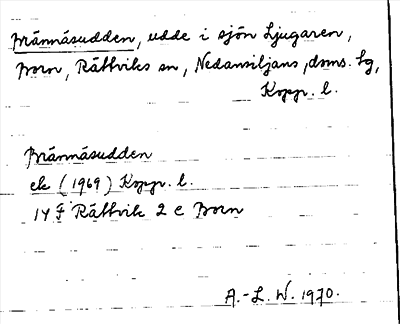 Brännäsudden, udde i sjön Ljugaren,
Born, Rättviks sn, Nedansiljans doms. hg,
Kopp. l.
Brännäsudden
ek (1969) Kopp. l.
14 F Rättvik 2 c Born
A.-L. W. 1970.